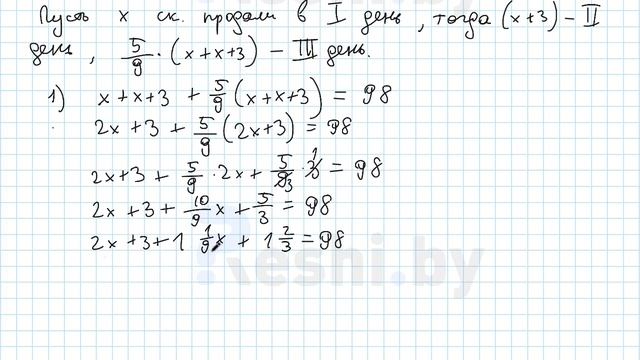 Пусть x ск. продали в I день, тогда (x+3) – II
день, 5/9 · (x+x+3) – III день.
1) x+x+3 + 5/9(x+x+3) = 98
2x+3 + 5/9(2x+3) = 98
2x+3 + 5/9 · 2x + 5/9 3 · 3 1 = 98
2x+3+ 10/9 x + 5/3 = 98
2x+3+1 1/9 x + 1 2/3 = 98
Reshi.by